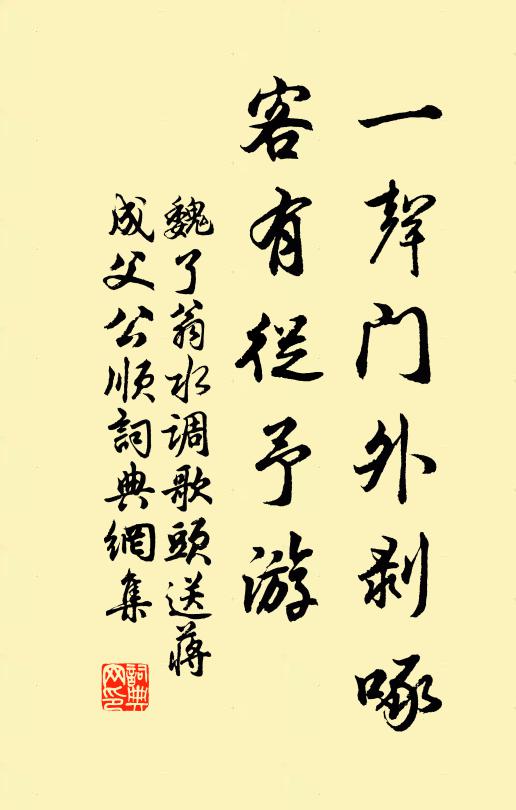 一聲门外剥啄
客有從予游
魏了翁水调歌頭送蒋
成父公顺詞典網集
詞典网印